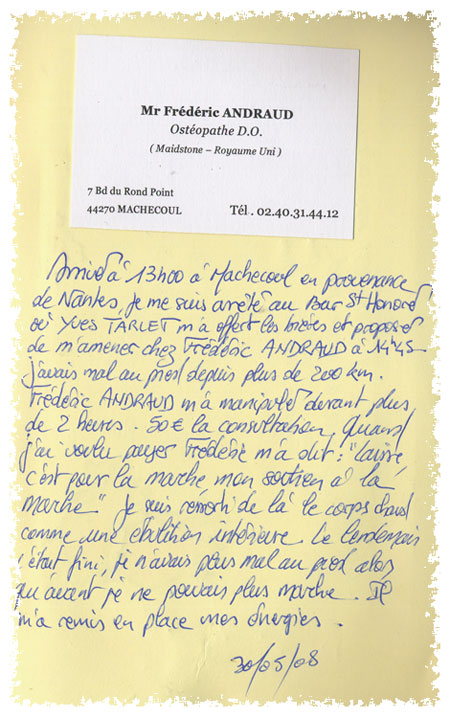 Mr Frédéric ANDRAUD
Ostéopathe D.O.
( Maidstone – Royaume Uni )
7 Bd du Rond Point
44270 MACHECOUL
Tél . 02.40.31.44.12
Arrivé à 13h00 à Machecoul en provenance
de Nantes, je me suis arrêté au Bar St Honoré
où Yves TARLET m'a offert les bières et proposé
de m'amener chez Frédéric ANDRAUD à 14h45
j'avais mal au pied depuis plus de 200 km.
Frédéric ANDRAUD m'a manipulé durant plus
de 2 heures. 50€ la consultation. Quand
j'ai voulu payer Frédéric m'a dit : "laisse
c'est pour la marche mon soutien à la
marche" Je suis ressorti de là le corps chaud
comme une ébullition intérieure. Le lendemain
c'était fini, je n'avais plus mal au pied alors
qu'avant je ne pouvais plus marcher. Il
m'a remis en place mes énergies.
30/05/08